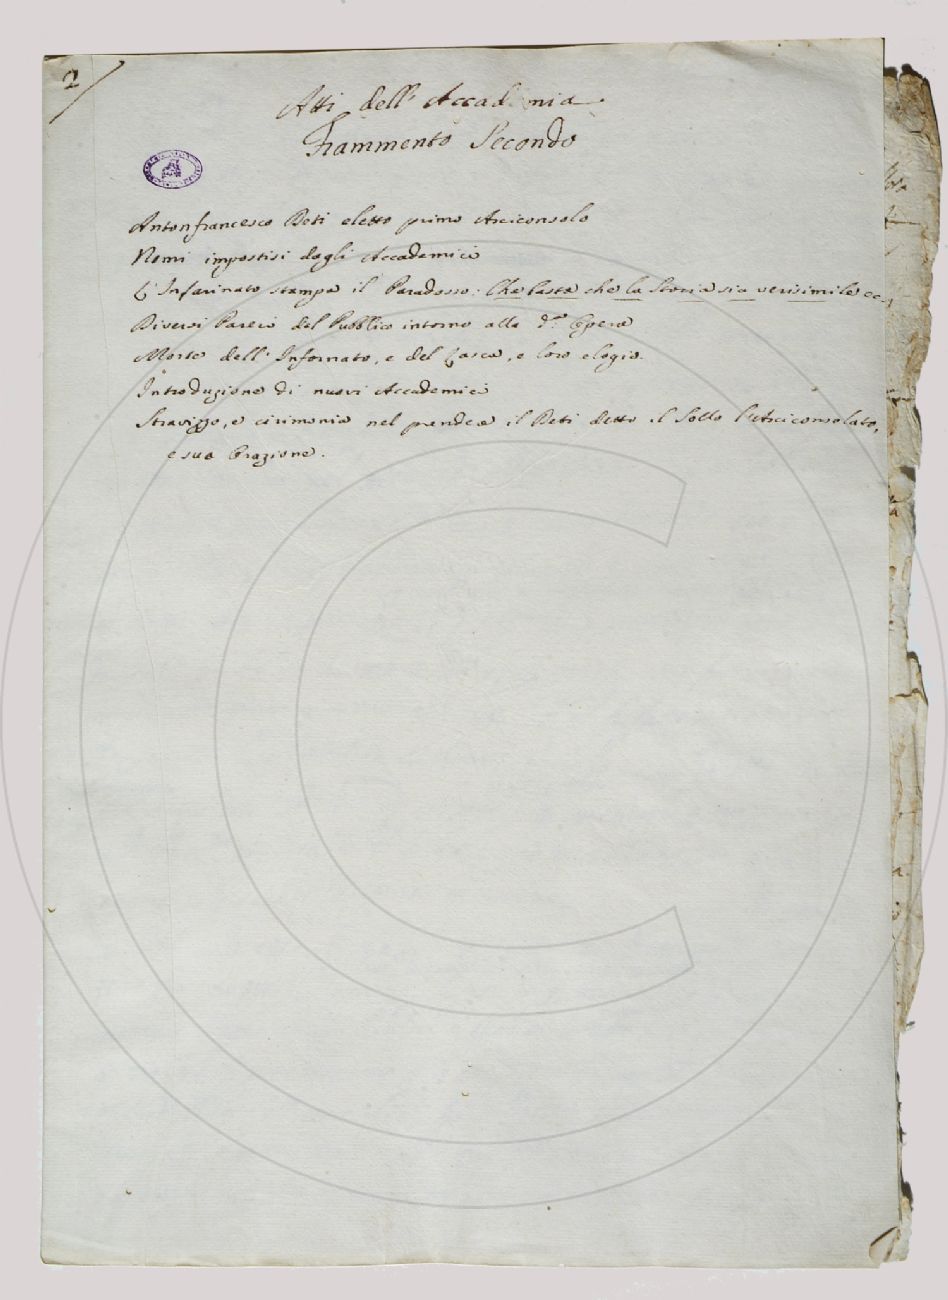 2
Atti dell'Accademia
Frammento Secondo
Antonfrancesco Beti eletto primo Arciconsolo
Nomi impostisi dagli Accademici
L'Infarinato stampa il Paradosso: Che basta che la Storia sia verisimile ec.
Diversi Pareri del Pubblico intorno alla d.ª Opera
Morte dell'Infornato, e del Lasca, e loro elogio.
Introduzione di nuovi Accademici
Stravizzo, e cirimonia nel prendere il Beti detto il Sollo l'Arciconsolato,
e sua Orazione.